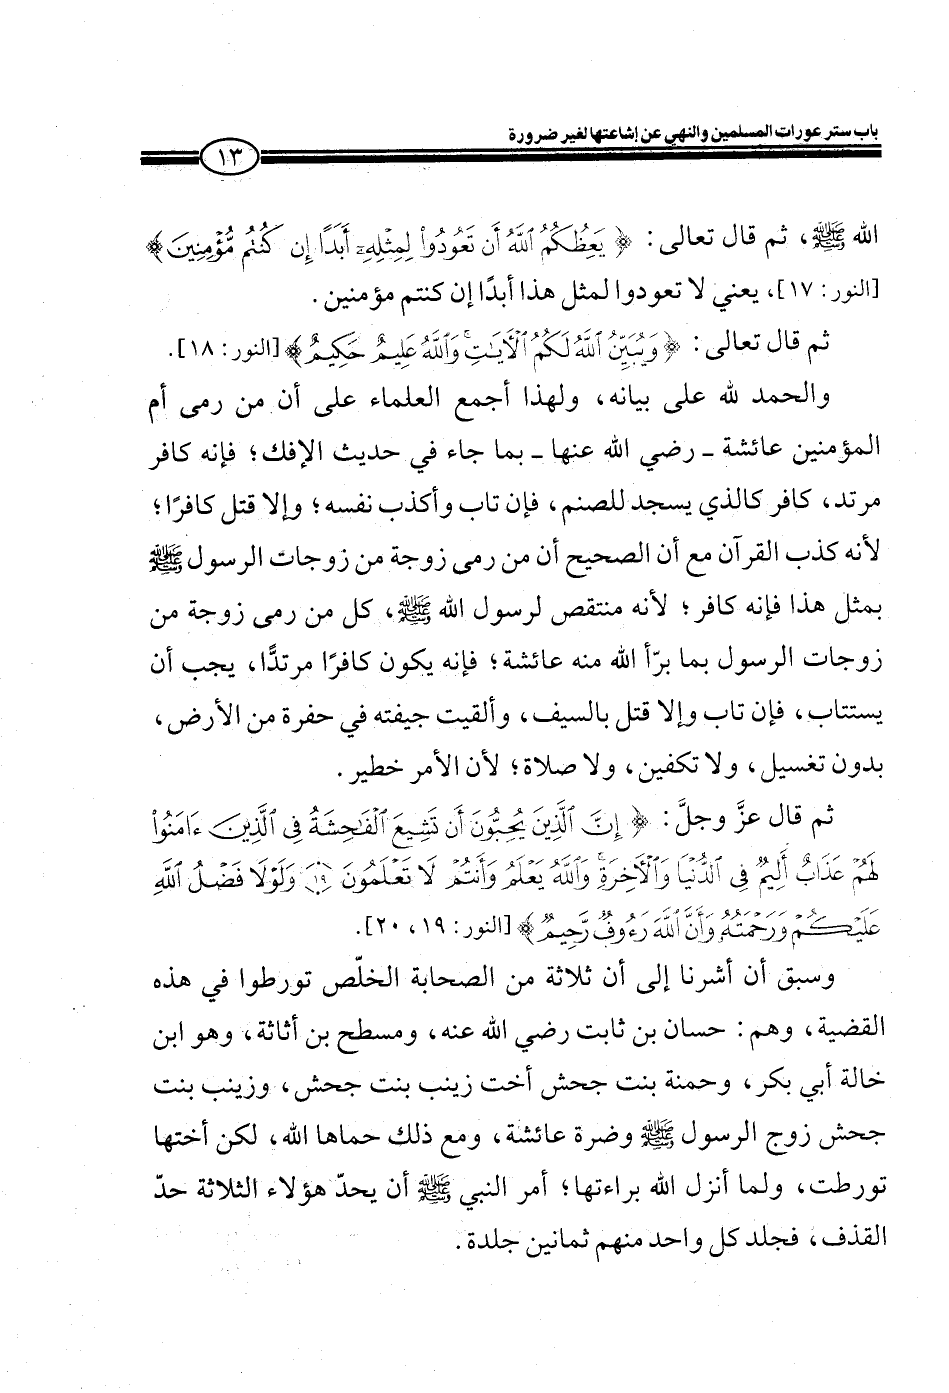 باب ستر عورات المسلمين والنهي عن إشاعتها لغير ضرورة
١٣
الله ﷺ، ثم قال تعالى: ﴿ يَعِظُكُمُ ٱللَّهُ أَن تَعُودُوا۟ لِمِثْلِهِۦٓ أَبَدًا إِن كُنتُم مُّؤْمِنِينَ ﴾
[النور: ١٧]، يعني لا تعودوا لمثل هذا أبدًا إن كنتم مؤمنين.
ثم قال تعالى: ﴿ وَيُبَيِّنُ ٱللَّهُ لَكُمُ ٱلْآيَـٰتِ ۚ وَٱللَّهُ عَلِيمٌ حَكِيمٌ ﴾ [النور: ١٨].
والحمد لله على بيانه، ولهذا أجمع العلماء على أن من رمى أم
المؤمنين عائشة ـ رضي الله عنها ـ بما جاء في حديث الإفك؛ فإنه كافر
مرتد، كافر كالذي يسجد للصنم، فإن تاب وأكذب نفسه؛ وإلا قتل كافرًا؛
لأنه كذب القرآن مع أن الصحيح أن من رمى زوجة من زوجات الرسول ﷺ
بمثل هذا فإنه كافر؛ لأنه منتقص لرسول الله ﷺ، كل من رمى زوجة من
زوجات الرسول بما برّأ الله منه عائشة؛ فإنه يكون كافرًا مرتدًّا، يجب أن
يستتاب، فإن تاب وإلا قتل بالسيف، وألقيت جيفته في حفرة من الأرض،
بدون تغسيل، ولا تكفين، ولا صلاة؛ لأن الأمر خطير.
ثم قال عزَّ وجلَّ: ﴿ إِنَّ ٱلَّذِينَ يُحِبُّونَ أَن تَشِيعَ ٱلْفَـٰحِشَةُ فِى ٱلَّذِينَ ءَامَنُوا۟
لَهُمْ عَذَابٌ أَلِيمٌ فِى ٱلدُّنْيَا وَٱلْآخِرَةِ ۚ وَٱللَّهُ يَعْلَمُ وَأَنتُمْ لَا تَعْلَمُونَ ١٩ وَلَوْلَا فَضْلُ ٱللَّهِ
عَلَيْكُمْ وَرَحْمَتُهُۥ وَأَنَّ ٱللَّهَ رَءُوفٌ رَّحِيمٌ ﴾ [النور: ١٩، ٢٠].
وسبق أن أشرنا إلى أن ثلاثة من الصحابة الخلّص تورطوا في هذه
القضية، وهم: حسان بن ثابت رضي الله عنه، ومسطح بن أثاثة، وهو ابن
خالة أبي بكر، وحمنة بنت جحش أخت زينب بنت جحش، وزينب بنت
جحش زوج الرسول ﷺ وضرة عائشة، ومع ذلك حماها الله، لكن أختها
تورطت، ولما أنزل الله براءتها؛ أمر النبي ﷺ أن يحدّ هؤلاء الثلاثة حدّ
القذف، فجلد كل واحد منهم ثمانين جلدة.